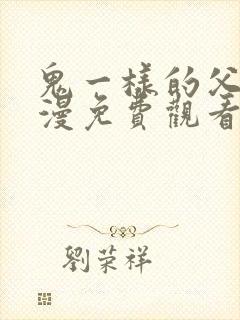 鬼一樣的父
漫免費觀看
劉荣祥